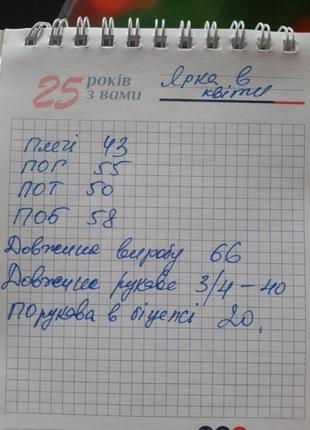 25 років
з вами
Ярка в
квіти
Плечі 43
ПОГ 55
ПОТ 50
ПОБ 58
Довжина виробу 66
Довжина рукава 3/4 - 40
ПО рукава в біцепсі 20.